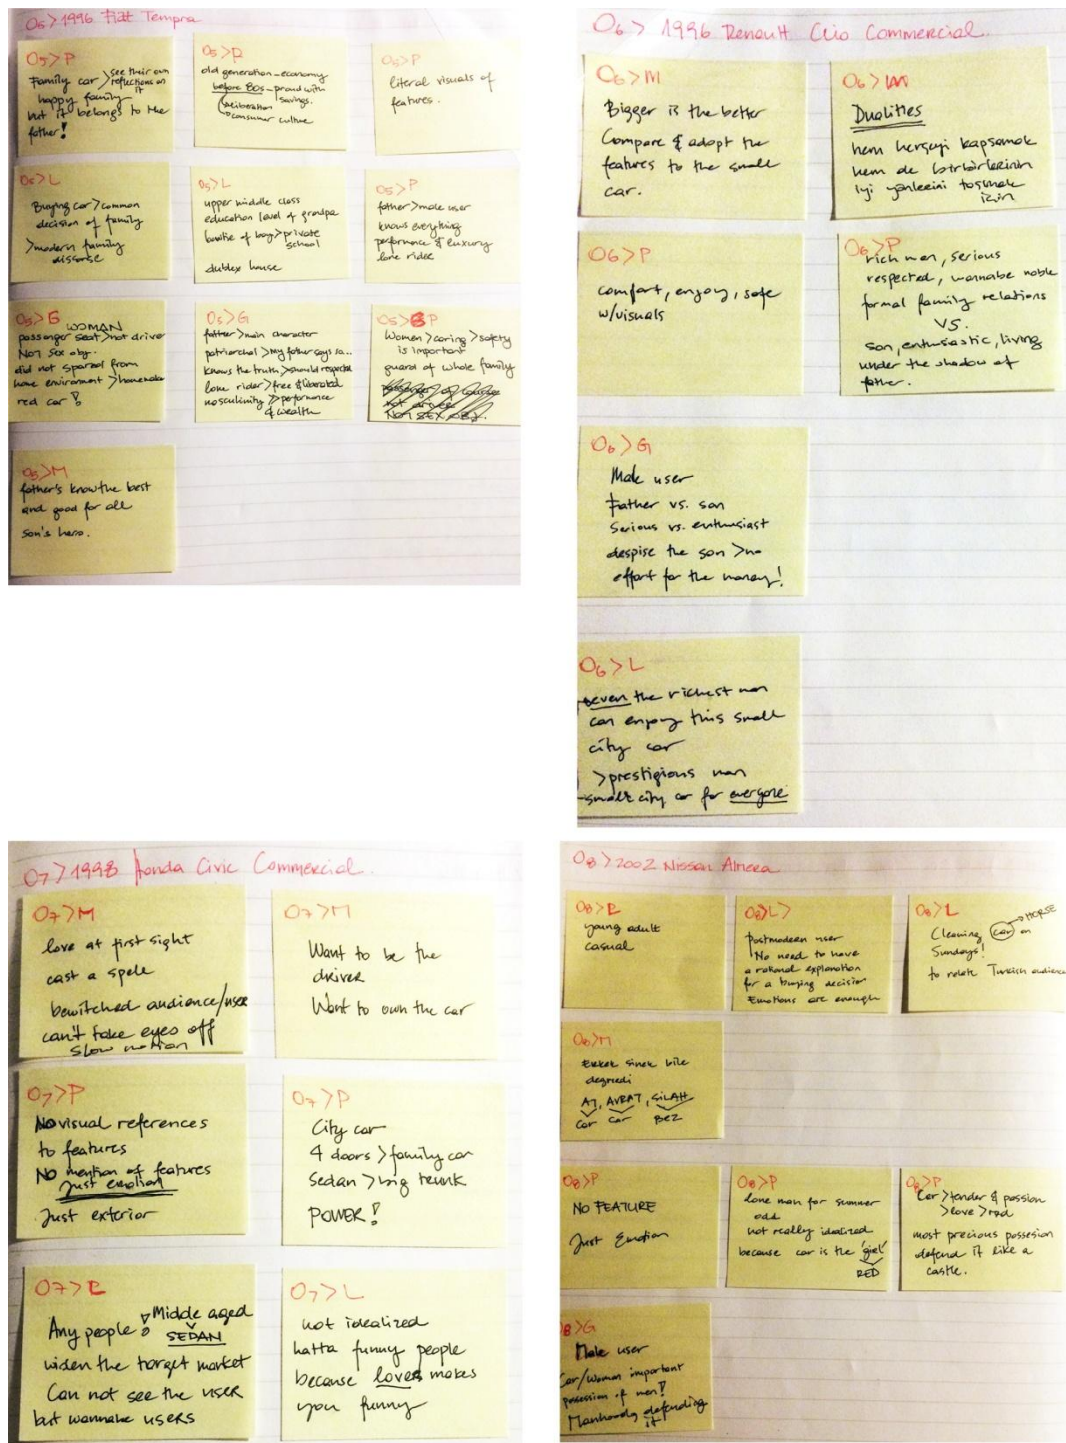 O5 > 1996 Fiat Tempra
O5>P
Family car > see their own
reflections on
it
happy family
but it belongs to the
father!
O5>P
old generation – economy
before 80s – proud with
savings.
liberation
> consumer culture
O5>P
literal visuals of
features.
O5>L
Buying car > common
decision of family
> modern family
O5>L
upper middle class
education level of grandpa
of boy > private
school
dublex house
O5>P
father > male user
knows everything
performance & luxury
lone rider
O5>G
WOMAN
passenger seat > not driver
Not sex obj.
did not from
home environment >
red car!
O5>G
father > main character
patriarchal > my father says so...
knows the truth > should respected
lone rider > free & liberated
masculinity >> performance
& wealth
O5>P
Women > caring > safety
is important
guard of whole family
NOT SEX OBJ.
O5>M
father's know the best
and good for all
son's hero.
O6 > 1996 Renault Clio Commercial.
O6>M
Bigger is the better
Compare & adapt the
features to the small
car.
O6>M
Dualities
hem herşeyi kapsamak
hem de birbirlerinin
iyi yönlerini taşımak
için
O6>P
comfort, enjoy, safe
w/visuals
O6>P
rich man, serious
respected, wannabe noble
formal family relations
VS.
son, enthusiastic, living
under the shadow of
father.
O6>G
Male user
Father vs. son
Serious vs. enthusiast
despise the son > no
effort for the money!
O6>L
even the richest man
can enjoy this small
city car
> prestigious man
small city car for everyone
O7 > 1998 Honda Civic Commercial.
O7>M
love at first sight
cast a spell
bewitched audience/user
can't take eyes off
slow motion
O7>M
Want to be the
driver
Want to own the car
O7>P
No visual references
to features
No mention of features
Just emotion
Just exterior
O7>P
City car
4 doors > family car
Sedan > big trunk
POWER!
O7>L
Any people! Middle aged
SEDAN
widen the target market
Can not see the user
but wannabe users
O7>L
not idealized
hatta funny people
because love makes
you funny
O8 > 2002 Nissan Almera
O8>L
young adult
casual
O8>L>
Postmodern user
No need to have
a rational explanation
for a buying decision
Emotions are enough
O8>L
HORSE
Cleaning car on
Sundays!
to relate Turkish audience
O8>M
Erkek sinek bile
değmedi
AT, AVRAT, SİLAH
Car Car BEZ
O8>P
NO FEATURE
Just Emotion
O8>P
lone man for summer
not really idealized
because car is the 'girl'
RED
O8>P
Car > tender & passion
> love > red
most precious possesion
defend it like a
castle.
O8>G
Male user
Car/Woman important
possesion of men!
Manhood, defending
it